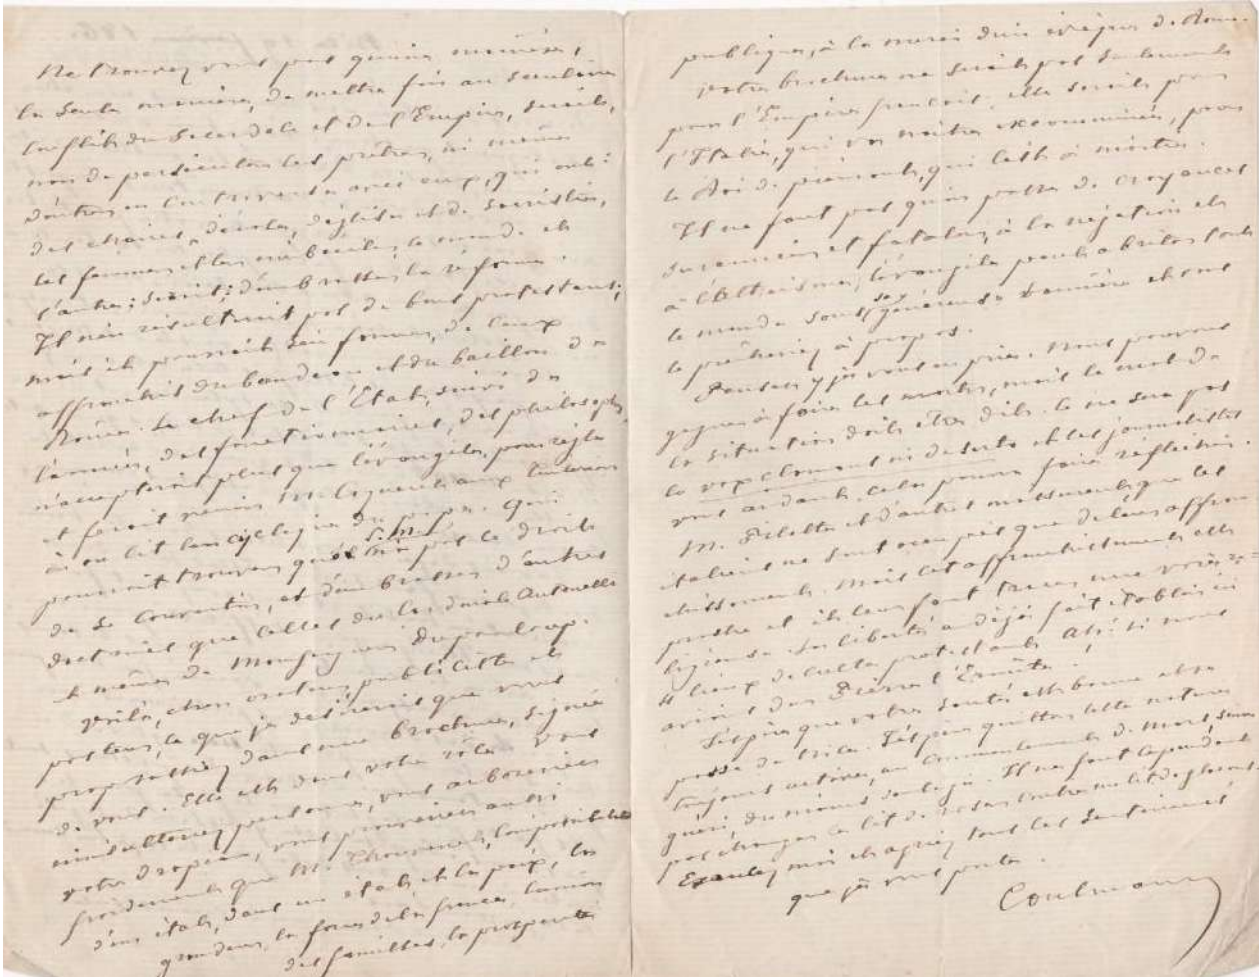 Ne trouvez vous pas qu'une manière,
la seule manière, de mettre fin au séculaire
conflit du Sacerdoce et de l'Empire, serait,
non de persécuter les prêtres, ni même
d'entrer en controverse avec eux, qui ont:
des chaires, d'écoles, d'églises et de sacristies,
les femmes et les imbéciles, le monde et
l'autre; serait: d'embrasser la réforme.
Il n'en résulterait pas de bons protestants;
mais il pourrait s'en former, de ceux
affranchis du bandeau et du baillon de
Rome. Le chef de l'État, suivi de
l'armée, des fonctionnaires, des philosophes,
n'accepterait plus que l'évangile, pour règle
et ferait venir M. Coquerel aux Tuileries
où on lit l'encyclique du pape. Qui
pourrait trouver qu'il n'a pas le droit
de se convertir, et d'embrasser d'autres
doctrines que celles du Cardinal Antonelli
et même de Monseigneur Dupanloup.
Voilà, cher orateur, publiciste et
pasteur, ce que je désirerais que vous
proposassiez dans une brochure, signée
de vous. Elle est dans votre rôle. Vous
n'insulteriez personne, vous arboreriez
votre drapeau, vous prouveriez aussi
froidement que M. Thouvenel, l'impossibilité
d'un état, dans un état et la paix, la
grandeur, la force de la france, l'union
des familles, la prospérité
publique, à la merci d'un évêque de Rome.
Votre brochure ne serait pas seulement
pour l'Empire français, elle serait pour
l'Italie, qui va naître excommuniée, pour
le Roi de piémont, qui l'est à
Il ne faut pas qu'on passe de croyances
surannées et fatales, à la négation et
à l'Athéisme, l'évangile peut abriter tout
le monde sous sa généreuse bannière et vous
le prêcheriez à propos.
Pensez y je vous en prie. Nous pouvons
gagner à faire les morts, mais le mot de
la situation doit être dit. Ce ne sera pas
la vox clamant in deserto et les journalistes
vous aidant, cela pourra faire réflechir.
M. Pilatte et d'autres m'assurent que les
italiens ne sont occupés que de leur affran
chissement. Mais cet affranchissement est
proche et il leur faut tracer une voie re-
ligieuse. La liberté a déjà fait établir ici
4 lieux de culte protestant. Ah! si nous
avions un Pierre l'Ermite!
J'espère que votre santé est bonne et se
passe de Nice. J'espère quitter cette nature
toujours active, au commencement de Mars, sinon
guéri, du moins soulagé. Il ne faut cependant
pas changer ce lit de roses contre un lit de glacons.
Excusez moi et agréez tous les sentiments
que je vous porte.
Coulmann